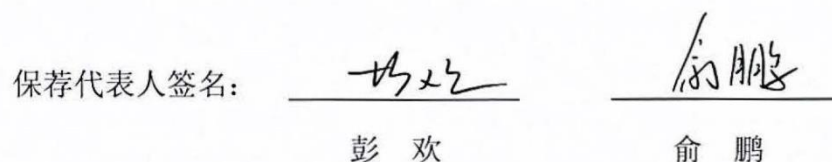 保荐代表人签名： 俞鹏
彭 欢 俞 鹏